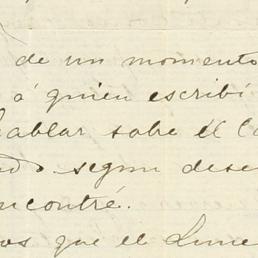 de un momento
á quien escribí
hablar sobre el
segun
ncontré.
os que el Lune